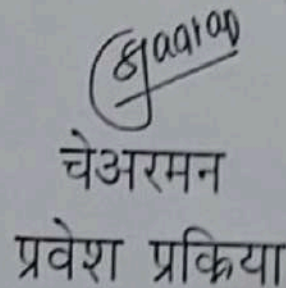 चेअरमन
प्रवेश प्रक्रिया